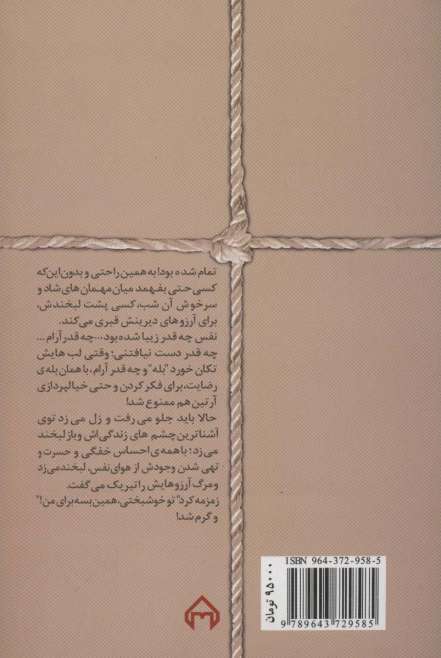 تمام شده بود! به همین راحتی و بدون این‌که
کسی حتی بفهمد میان مهمان‌های شاد و
سرخوش آن شب، کسی پشت لبخندش،
برای آرزوهای دیرینش قبری می‌کند.
نفس چه قدر زیبا شده بود... چه قدر آرام ...
چه قدر دست نیافتنی؛ وقتی لب هایش
تکان خورد "بله" و چه قدر آرام، با همان بله‌ی
رضایت، برای فکر کردن و حتی خیالپردازی
آرتین هم ممنوع شد!
حالا باید جلو می رفت و زل می زد توی
آشناترین چشم های زندگی‌اش و باز لبخند
می زد؛ با همه‌ی احساس خفگی و حسرت و
تهی شدن وجودش از هوای نفس، لبخند می‌زد
و مرگ آرزوهایش را تبریک می گفت.
زمزمه کرد "تو خوشبختی، همین بسه برای من!"
و گرم شد!
ISBN 964-372-958-5
9 789643 729585
۹۵۰۰۰ تومان